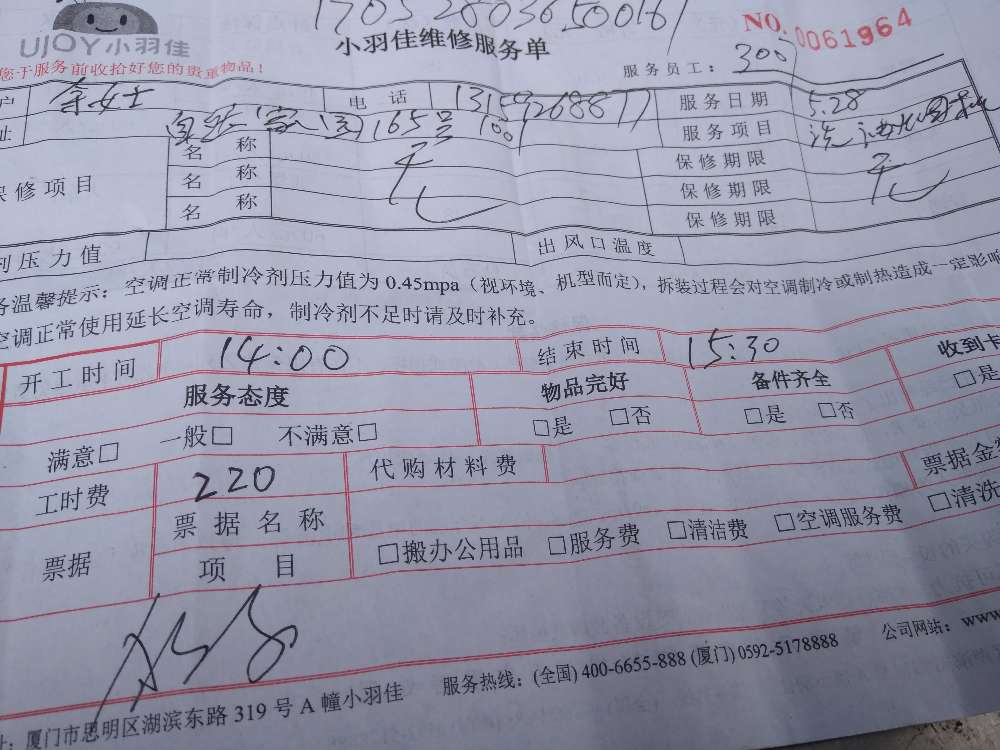 17052803650016
UJOY小羽佳
小羽佳维修服务单
NO.0061964
您于服务前收拾好您的贵重物品!
服务员工: 300
户 余女士 电话 13159268877 服务日期 5.28
址 165号 1001 服务项目 洗油烟机
保修项目 名称 无 保修期限 无
名称 保修期限
名称 保修期限
剂压力值 出风口温度
务温馨提示: 空调正常制冷剂压力值为 0.45mpa (视环境、机型而定), 拆装过程会对空调制冷或制热造成一定影响
空调正常使用延长空调寿命, 制冷剂不足时请及时补充。
开工时间 14:00 结束时间 15:30
服务态度 物品完好 备件齐全 收到卡
满意□ 一般□ 不满意□ □是 □否 □是 □否 □是
工时费 220 代购材料费 票据金额
票据 票据名称
项目 □搬办公用品 □服务费 □清洁费 □空调服务费 □清洗
址: 厦门市思明区湖滨东路 319 号 A 幢小羽佳 服务热线: (全国) 400-6655-888 (厦门) 0592-5178888 公司网站: www